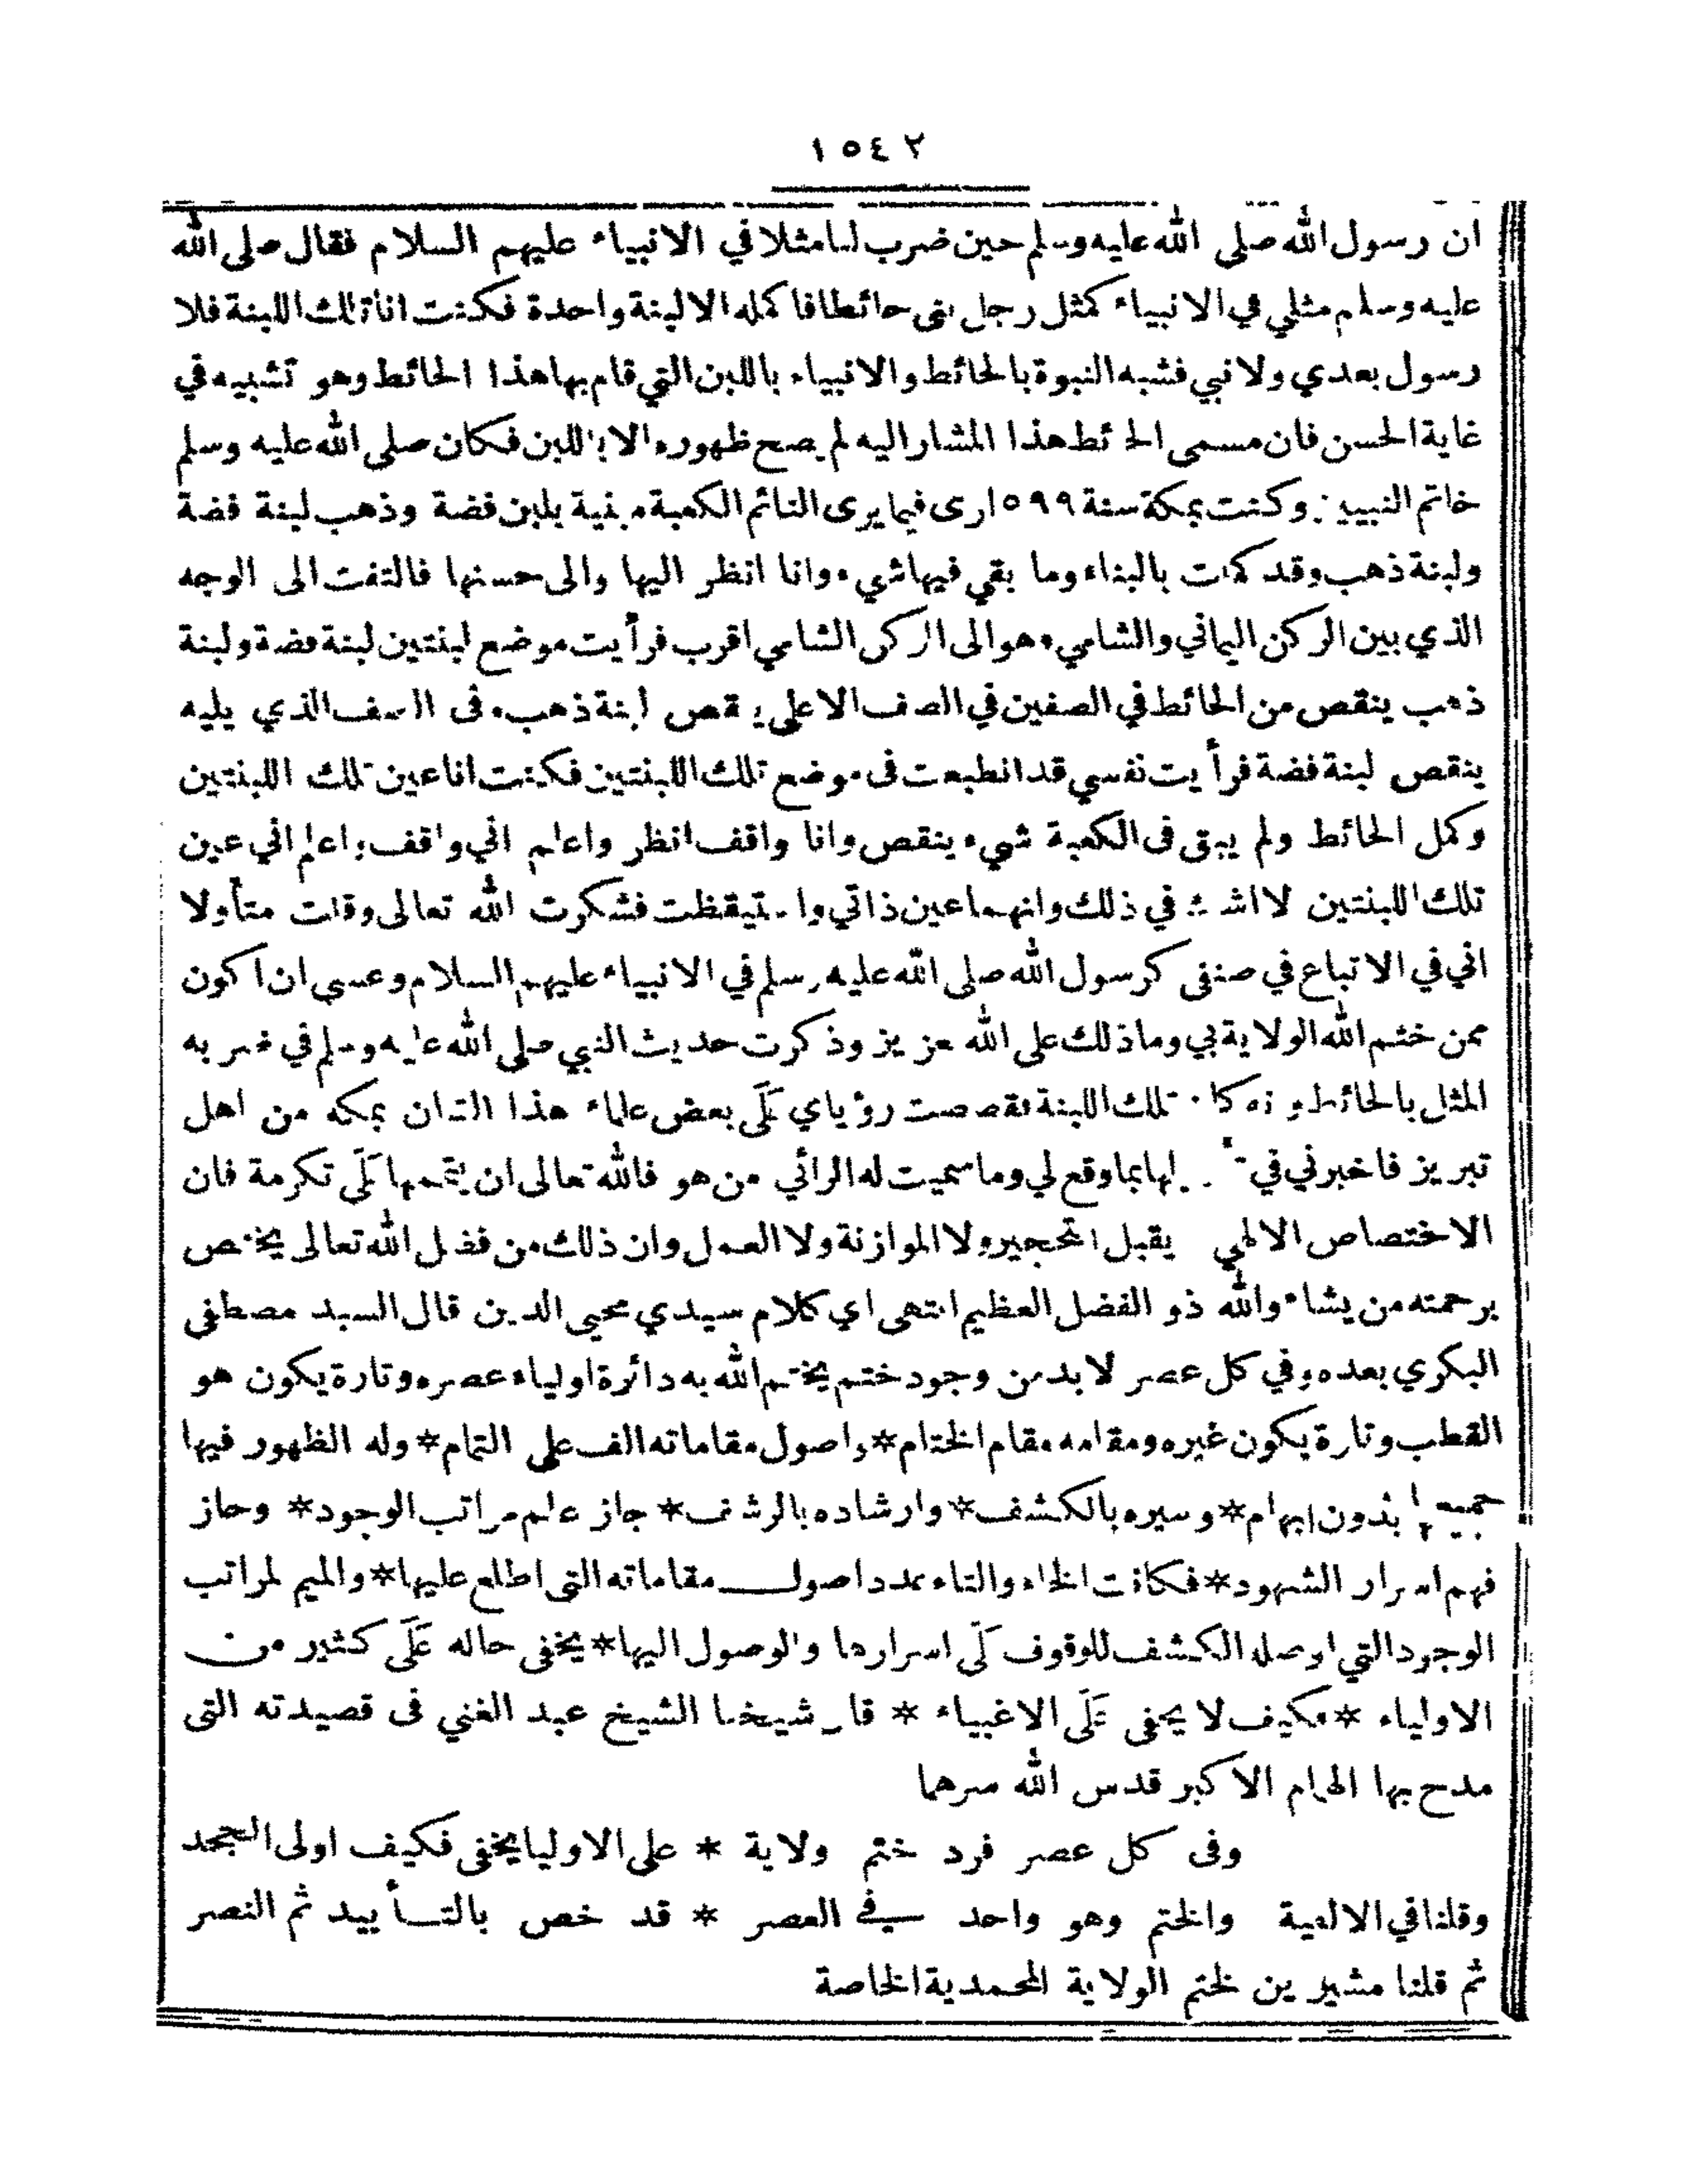 ١٥٤٢
ان رسول الله صلى الله عليه وسلم حين ضرب لنا مثلا في الانبياء عليهم السلام فقال صلى الله
عليه وسلم مثلي في الانبياء كمثل رجل بنى حائطا فاكمله الا لبنة واحدة فكنت انا تلك اللبنة فلا
رسول بعدي ولا نبي فشبه النبوة بالحائط والانبياء باللبن التي قام بها هذا الحائط وهو تشبيه في
غاية الحسن فان مسمى الحائط هذا المشار اليه لم يصح ظهوره الا باللبن فكان صلى الله عليه وسلم
خاتم النبيين وكنت بمكة سنة ٥٩٩ ارى فيما يرى النائم الكعبة مبنية بلبن فضة وذهب لبنة فضة
ولبنة ذهب وقد كملت بالبناء وما بقي فيها شيء وانا انظر اليها والى حسنها فالتفت الى الوجه
الذي بين الركن اليماني والشامي وهو الى الركن الشامي اقرب فرأيت موضع لبنتين لبنة فضة ولبنة
ذهب ينقص من الحائط في الصفين في الصف الاعلى ينقص لبنة ذهب وفى الصف الذي يليه
ينقص لبنة فضة فرأيت نفسي قد انطبعت فى موضع تلك اللبنتين فكنت انا عين تلك اللبنتين
وكمل الحائط ولم يبق فى الكعبة شيء ينقص وانا واقف انظر واعلم اني واقف واعلم اني عين
تلك اللبنتين لا اشك في ذلك وانهما عين ذاتي واستيقظت فشكرت الله تعالى وقلت متأولا
اني في الاتباع في صنفى كرسول الله صلى الله عليه وسلم في الانبياء عليهم السلام وعسى ان اكون
ممن ختم الله الولاية بي وما ذلك على الله بعزيز وذكرت حديث النبي صلى الله عليه وسلم في ضربه
المثل بالحائط وانه كان تلك اللبنة فقصصت رؤياي عَلَى بعض علماء هذا الشان بمكه من اهل
تبريز فاخبرني في تأويلها بما وقع لي وما سميت له الرائي من هو فالله تعالى ان يتممها عَلَى تكرمة فان
الاختصاص الالهي يقبل التحجير ولا الموازنة ولا العمل وان ذلك من فضل الله تعالى يختص
برحمته من يشاء والله ذو الفضل العظيم انتهى اي كلام سيدي محيى الدين قال السيد مصطفى
البكري بعده وفي كل عصر لا بد من وجود ختم يختم الله به دائرة اولياء عصره وتارة يكون هو
القطب وتارة يكون غيره ومقامه مقام الختام * واصول مقاماته الف على التمام * وله الظهور فيها
جميعها بدون ابهام * وسيره بالكشف * وارشاده بالرشف * جاز عالم مراتب الوجود * وحاز
فهم اسرار الشهود * فكانت الخاء والتاء عدد اصول مقاماته التى اطلع عليها * والميم لمراتب
الوجود التي اوصله الكشف للوقوف عَلَى اسرارها والوصول اليها * يخفى حاله عَلَى كثير من
الاولياء * فكيف لا يخفى عَلَى الاغبياء * قال شيخنا الشيخ عبد الغني فى قصيدته التى
مدح بها الامام الاكبر قدس الله سرهما
وفى كل عصر فرد ختم ولاية * على الاوليا يخفى فكيف اولى الجحد
وقلنا في الالفية والختم وهو واحد في العصر * قد خص بالتأييد ثم النصر
ثم قلنا مشيرين لختم الولاية المحمدية الخاصة